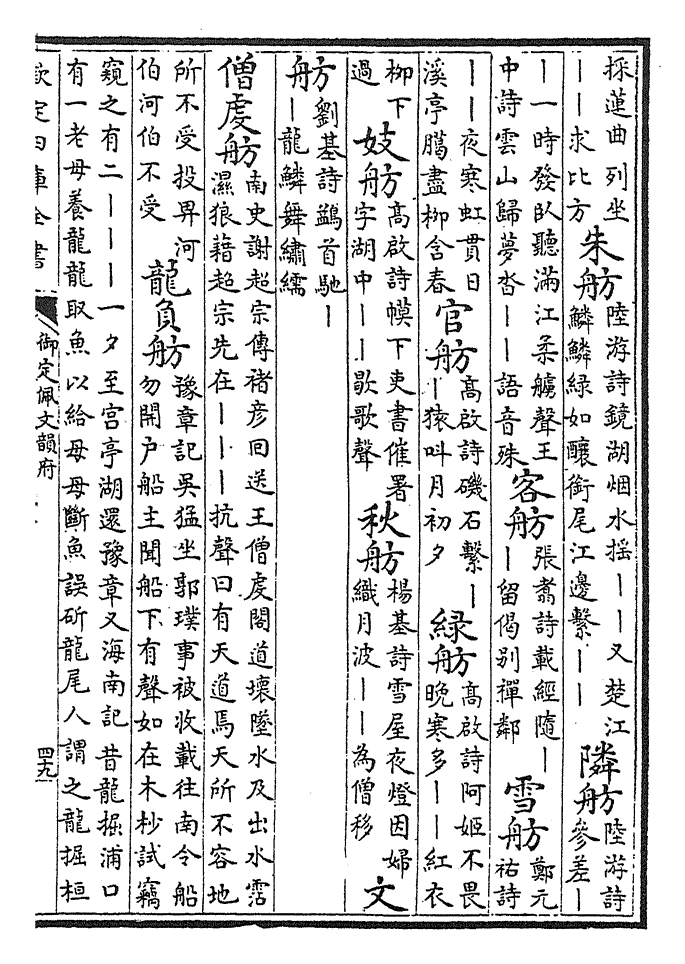 採蓮曲列坐
——求比方
朱舫
陸游詩鏡湖烟水揺——又楚江
鱗鱗綠如釀銜尾江邊繫——
隣舫
陸游詩
參差—
—一時發臥聽滿江柔艣聲王
中詩雲山歸夢沓——語音殊
客舫
張翥詩載經隨—
—留偈别禪鄰
雪舫
鄭元
祐詩
——夜寒虹貫日
溪亭臈盡栁含春
官舫
髙啟詩磯石繫—
—猿呌月初夕
綠舫
髙啟詩阿姬不畏
晚寒多——紅衣
栁下
過
妓舫
髙啟詩幙下吏書催署
字湖中——歇歌聲
秋舫
楊基詩雪屋夜燈因婦
織月波——為僧移
文
舫
劉基詩鷁首馳—
—龍鱗舞繡繻
僧䖍舫
南史謝超宗傳禇彦囘送王僧䖍閣道壞墜水及出水霑
濕狼藉超宗先在———抗聲曰有天道焉天所不容地
所不受投畀河
伯河伯不受
龍負舫
豫章記吳猛坐郭璞事被收載往南令船
勿開户船主聞船下有聲如在木杪試竊
窺之有二———一夕至宫亭湖還豫章又海南記昔龍掘浦口
有一老母養龍龍取魚以給母母斷魚誤斫龍尾人謂之龍掘桓
欽定四庫全書
御定佩文韻府
四九